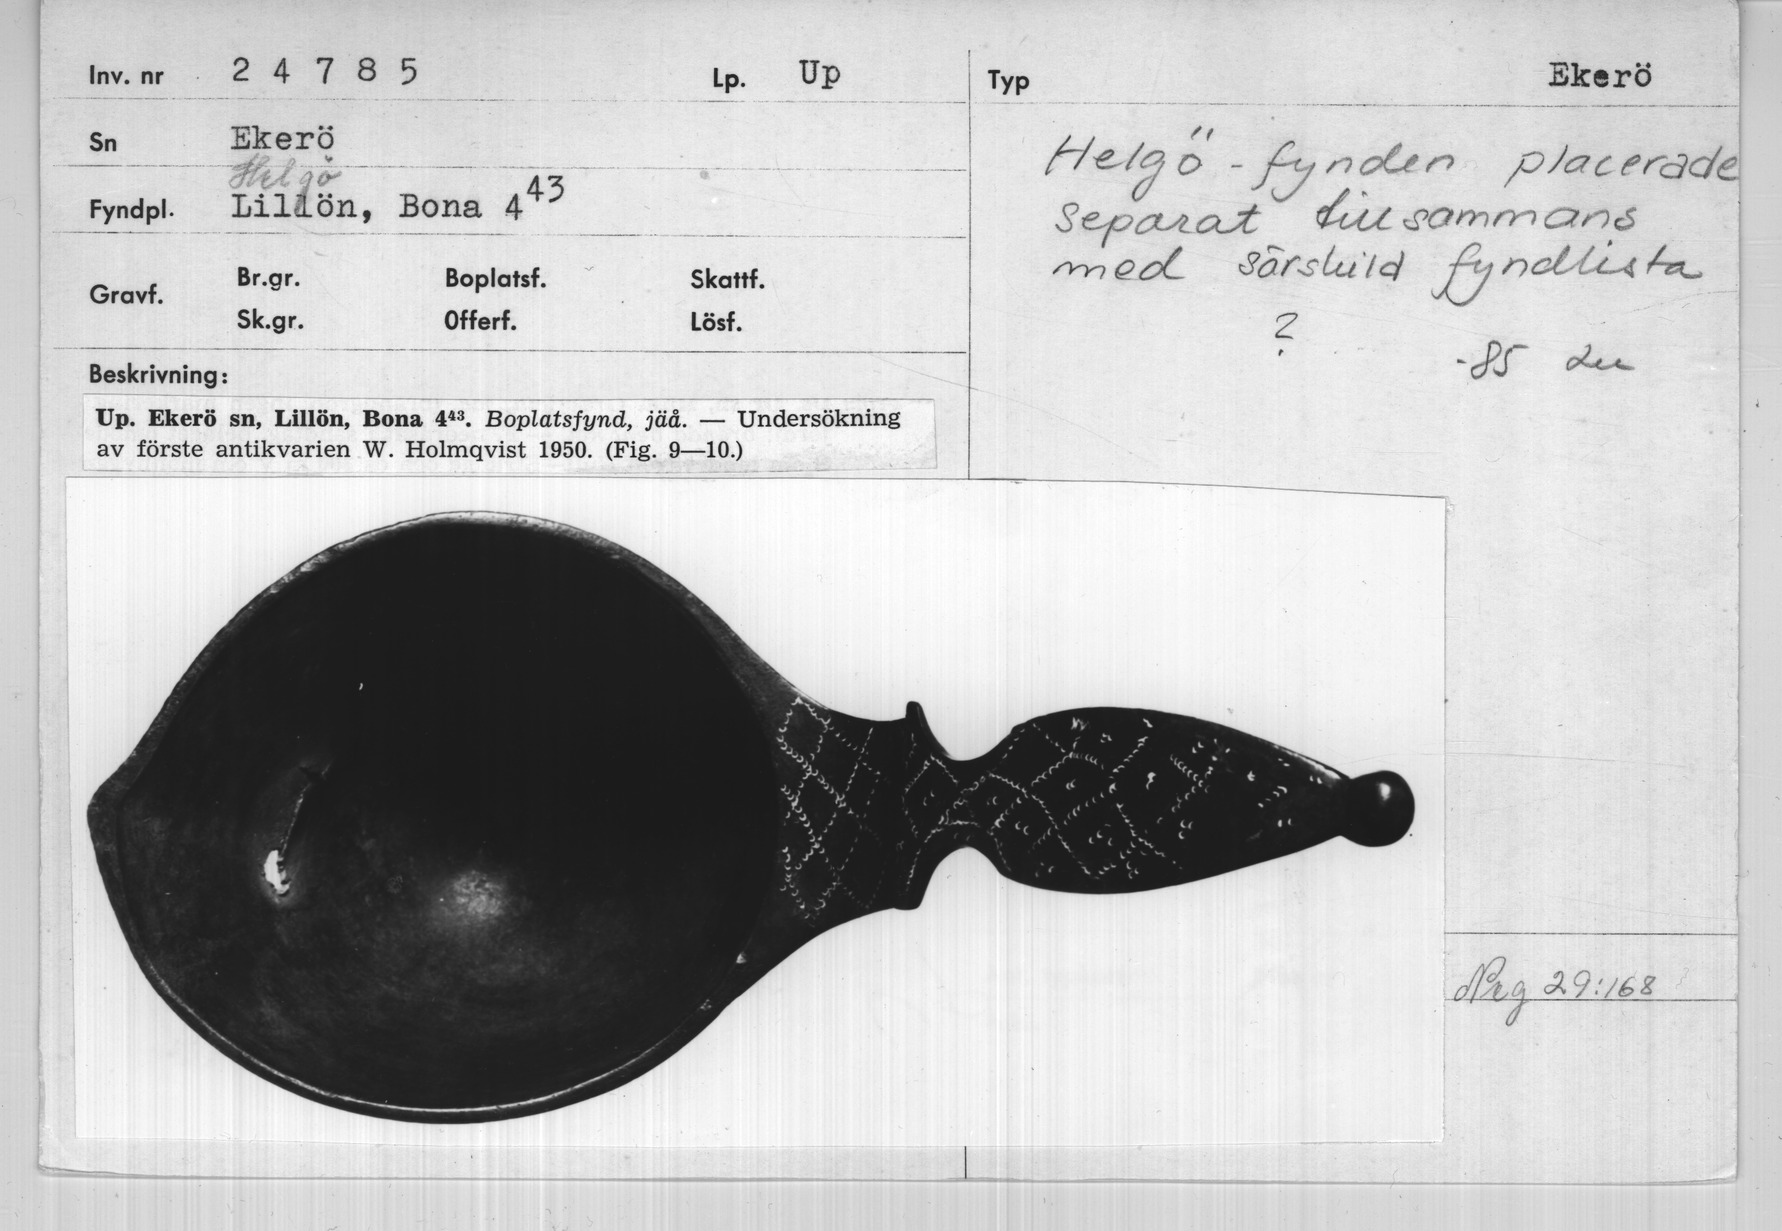 Inv. nr 2 4 7 8 5 Lp. Up
Sn Ekerö
Helgö
Fyndpl. Lillön, Bona 4⁴³
Gravf. Br.gr. Boplatsf. Skattf.
Sk.gr. Offerf. Lösf.
Beskrivning:
Up. Ekerö sn, Lillön, Bona 4⁴³. Boplatsfynd, jäå. — Undersökning
av förste antikvarien W. Holmqvist 1950. (Fig. 9—10.)
Typ Ekerö
Helgö-fynden placerade
separat tillsammans
med särskild fyndlista
?
-85
Neg 29:168